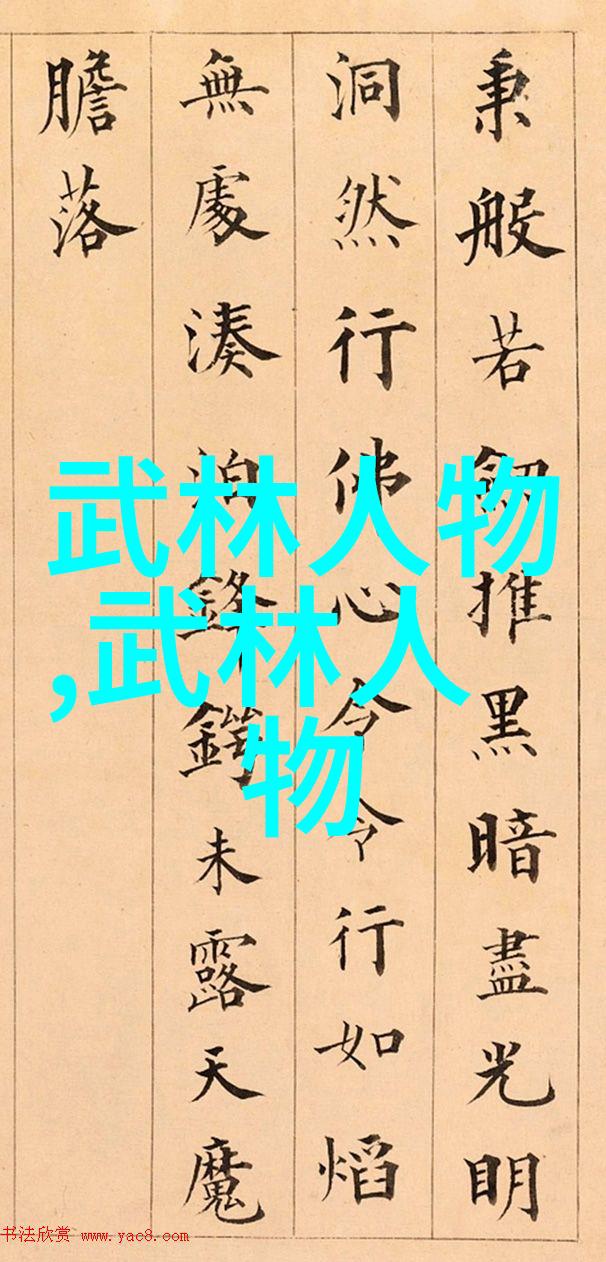 秉般若推黑暗盡光明
洞然行佛心令令行如熖
無處湊泊鋒鍔未露天魔
膽落
武林人物
,武林人
物
书法欣赏 www.yac8.com